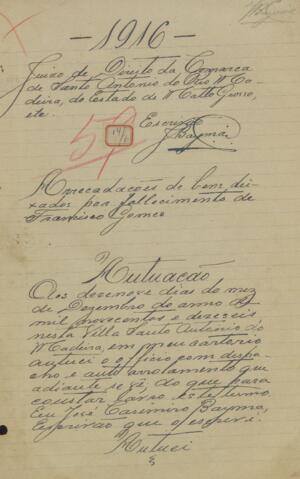 - 1916 -
Juizo de Direito da Comarca
de Santo Antonio do Rio Ma-
deira, do Estado de Matto Grosso,
etc.
Escrivão
Bayma
57
14/
Arrecadações de bens dei-
xados por fallecimento de
Francisco Gomes
Autuação
Aos desenove dias do mez
de Dezembro do anno de
mil novecentos e dezeseis
nesta Villa Santo Antonio do
Madeira, em meu cartorio
autuei o officio com despa-
cho e auto arrolamento que
adiante se vê do que para
constar lavro este termo
Eu José Casimiro Bayma,
Escrivão que o escrevi.
Autuei